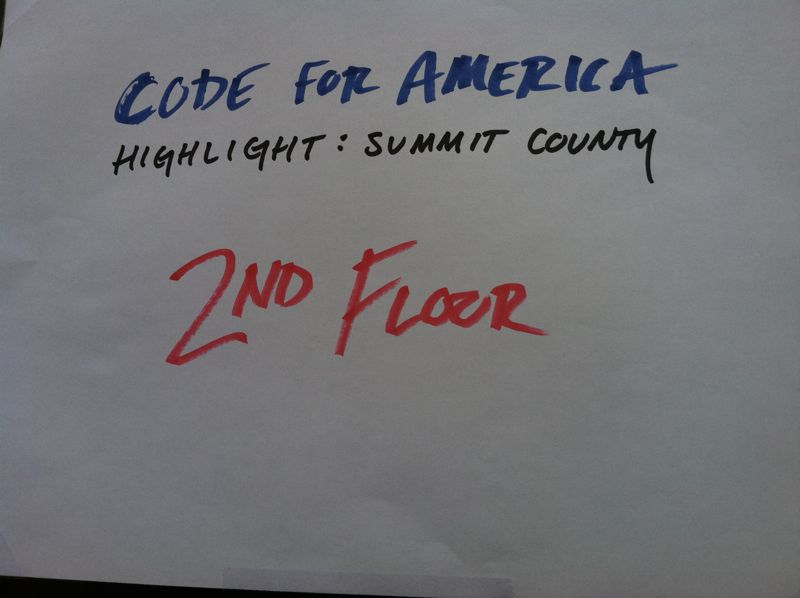 CODE FOR AMERICA
HIGHLIGHT: SUMMIT COUNTY
2ND FLOOR